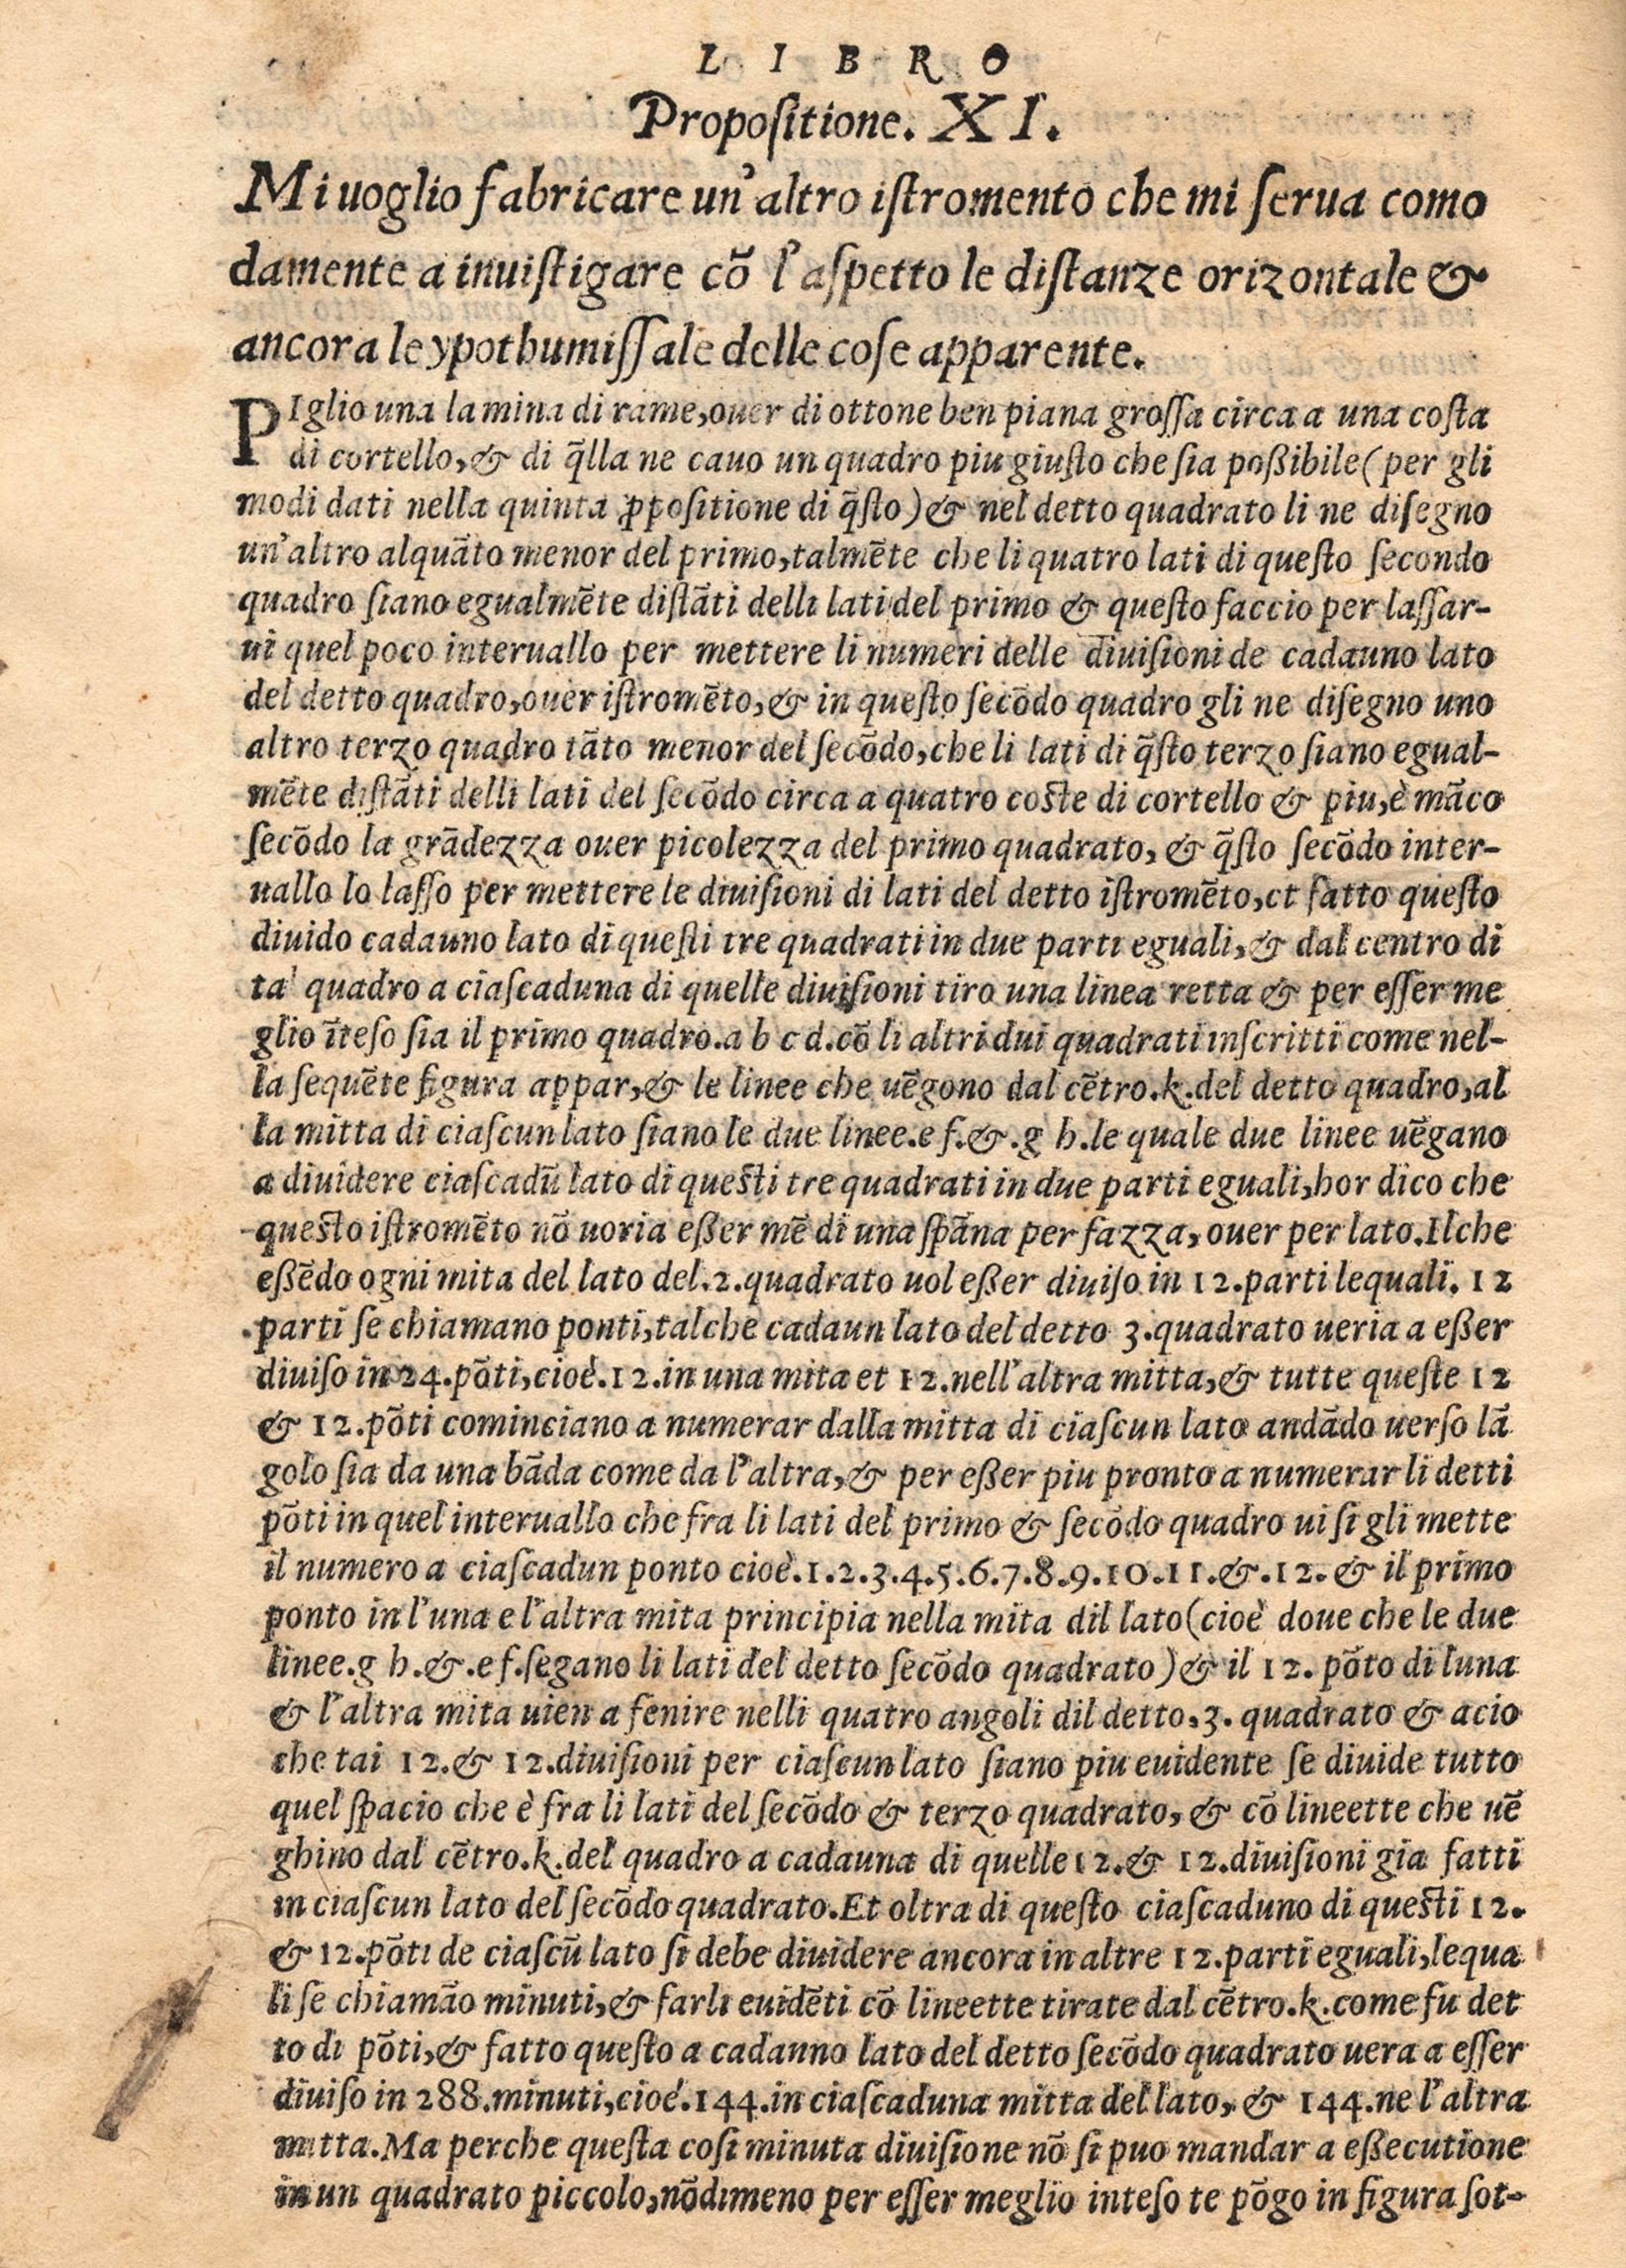 L I B R O
Propositione. XI.
Mi uoglio fabricare un'altro iſtromento che mi ſerua como
damente a inuiſtigare cō l'aſpetto le diſtanze orizontale &
ancora le ypothumiſſale delle coſe apparente.
PIglio una lamina di rame, ouer di ottone ben piana groſſa circa a una coſta
di cortello, & di q̄lla ne cauo un quadro piu giuſto che ſia poßibile (per gli
modi dati nella quinta ꝓpoſitione di q̄ſto) & nel detto quadrato li ne diſegno
un'altro alquāto menor del primo, talmēte che li quatro lati di queſto ſecondo
quadro ſiano egualmēte diſtāti delli lati del primo & queſto faccio per laſſar-
ui quel poco interuallo per mettere li numeri delle diuiſioni de cadauno lato
del detto quadro, ouer iſtromēto, & in queſto ſecōdo quadro gli ne diſegno uno
altro terzo quadro tāto menor del ſecōdo, che li lati di q̄ſto terzo ſiano egual-
mēte diſtāti delli lati del ſecōdo circa a quatro coſte di cortello & piu, è māco
ſecōdo la grādezza ouer picolezza del primo quadrato, & q̄ſto ſecōdo inter-
uallo lo laſſo per mettere le diuiſioni di lati del detto iſtromēto, et fatto queſto
diuido cadauno lato di queſti tre quadrati in due parti eguali, & dal centro di
tal quadro a ciaſcaduna di quelle diuiſioni tiro una linea retta & per eſſer me
glio īteſo ſia il primo quadro. a b c d. cō li altri dui quadrati inſcritti come nel-
la ſequēte figura appar, & le linee che uēgono dal cētro. k. del detto quadro, al
la mitta di ciaſcun lato ſiano le due linee. e f. &. g h. le quale due linee uēgano
a diuidere ciaſcadū lato di queſti tre quadrati in due parti eguali, hor dico che
queſto iſtromēto nō uoria eßer mē di una ſpāna per fazza, ouer per lato. Ilche
eßēdo ogni mita del lato del. 2. quadrato uol eßer diuiſo in 12. parti lequali. 12
parti ſe chiamano ponti, talche cadaun lato del detto 3. quadrato ueria a eßer
diuiſo in 24. pōti, cioè. 12. in una mita et 12. nell'altra mitta, & tutte queſte 12
& 12. pōti cominciano a numerar dalla mitta di ciaſcun lato andādo uerſo lā
golo ſia da una bāda come da l'altra, & per eßer piu pronto a numerar li detti
pōti in quel interuallo che fra li lati del primo & ſecōdo quadro ui ſi gli mette
il numero a ciaſcadun ponto cioè. 1. 2. 3. 4. 5. 6. 7. 8. 9. 10. 11. &. 12. & il primo
ponto in l'una e l'altra mita principia nella mita dil lato (cioè doue che le due
linee. g h. &. e f. ſegano li lati del detto ſecōdo quadrato) & il 12. pōto di luna
& l'altra mita uien a fenire nelli quatro angoli dil detto. 3. quadrato & acio
che tai 12. & 12. diuiſioni per ciaſcun lato ſiano piu euidente ſe diuide tutto
quel ſpacio che è fra li lati del ſecōdo & terzo quadrato, & cō lineette che uē
ghino dal cētro. k. del quadro a cadauna di quelle 12. & 12. diuiſioni gia fatti
in ciaſcun lato del ſecōdo quadrato. Et oltra di queſto ciaſcaduno di queſti 12.
& 12. pōti de ciaſcū lato ſi debe diuidere ancora in altre 12. parti eguali, lequa
li ſe chiamāo minuti, & farli euidēti cō lineette tirate dal cētro. k. come fu det
to di pōti, & fatto queſto a cadauno lato del detto ſecōdo quadrato uera a eſſer
diuiſo in 288. minuti, cioé. 144. in ciaſcaduna mitta del lato, & 144. ne l'altra
mitta. Ma perche queſta coſi minuta diuiſione nō ſi puo mandar a eßecutione
in un quadrato piccolo, nōdimeno per eſſer meglio inteſo te pōgo in figura ſot-